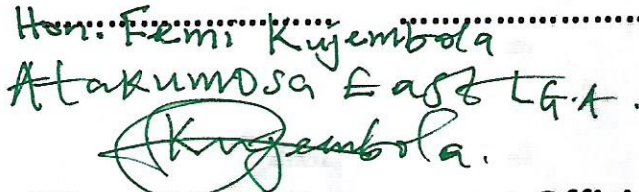 Hon. Femi Kujembola
Atakumosa East L.G.A.
Kujembola.